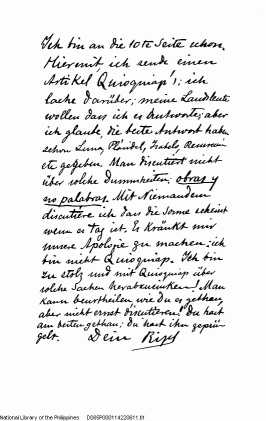 Ich bin an die 10te Seite schon.
Hiermit ich sende einen
Artikel Quioquiap's; ich
lache darüber; meine Landsleute
wollen dass ich es Antworte; aber
ich glaube die beste Antwort haben
schon Luna, Pluridel, Isabelo, Resurrecc-
etc gegeben. Man discutiert nicht
über solche Dummheiten; obras y
no palabras. Mit Niemandem
discutiere ich dass die Sonne scheint
wenn es Tag ist. Es kränkt mir
unsre Apologie zu machen; ich
bin nicht Quioquiap. Ich bin
zu stolz und mit Quioquiap über
solche Sachen herabzusinken! Man
kann beurtheilen wie du es gethan,
aber nicht ernst discutieren! Du hast
am besten gethan; du hast ihn geprü-
gelt. Dein Rizal
National Library of the Philippines DG05P000114220611.tif